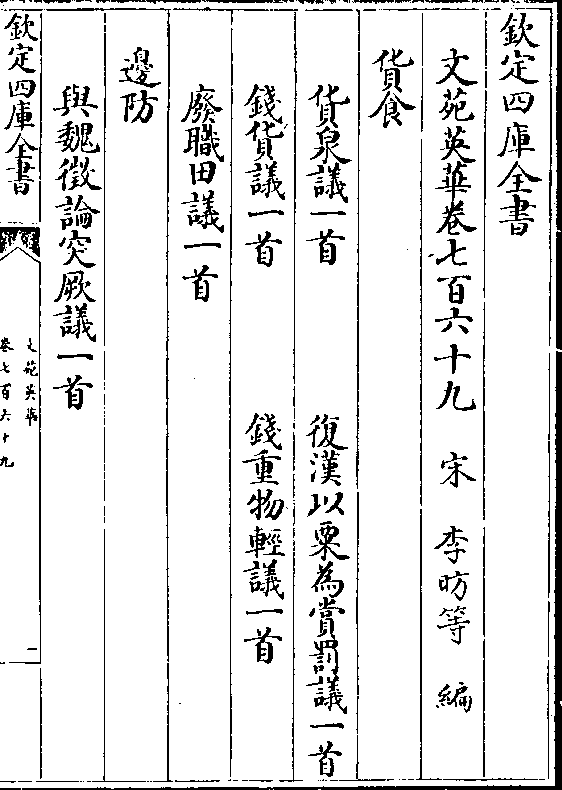 欽定四庫全書
文苑英華卷七百六十九 宋 李昉等 編
貨食
貨泉議一首 復漢以粟為賞罰議一首
錢貨議一首 錢重物輕議一首
廢職田議一首
邊防
與魏徵論突厥議一首
欽定四庫全書
文苑英華
卷七百六十九
一